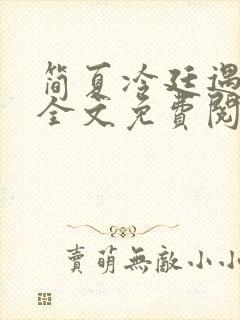 简夏冷廷遇
全文免费阅
賣萌無敵小小